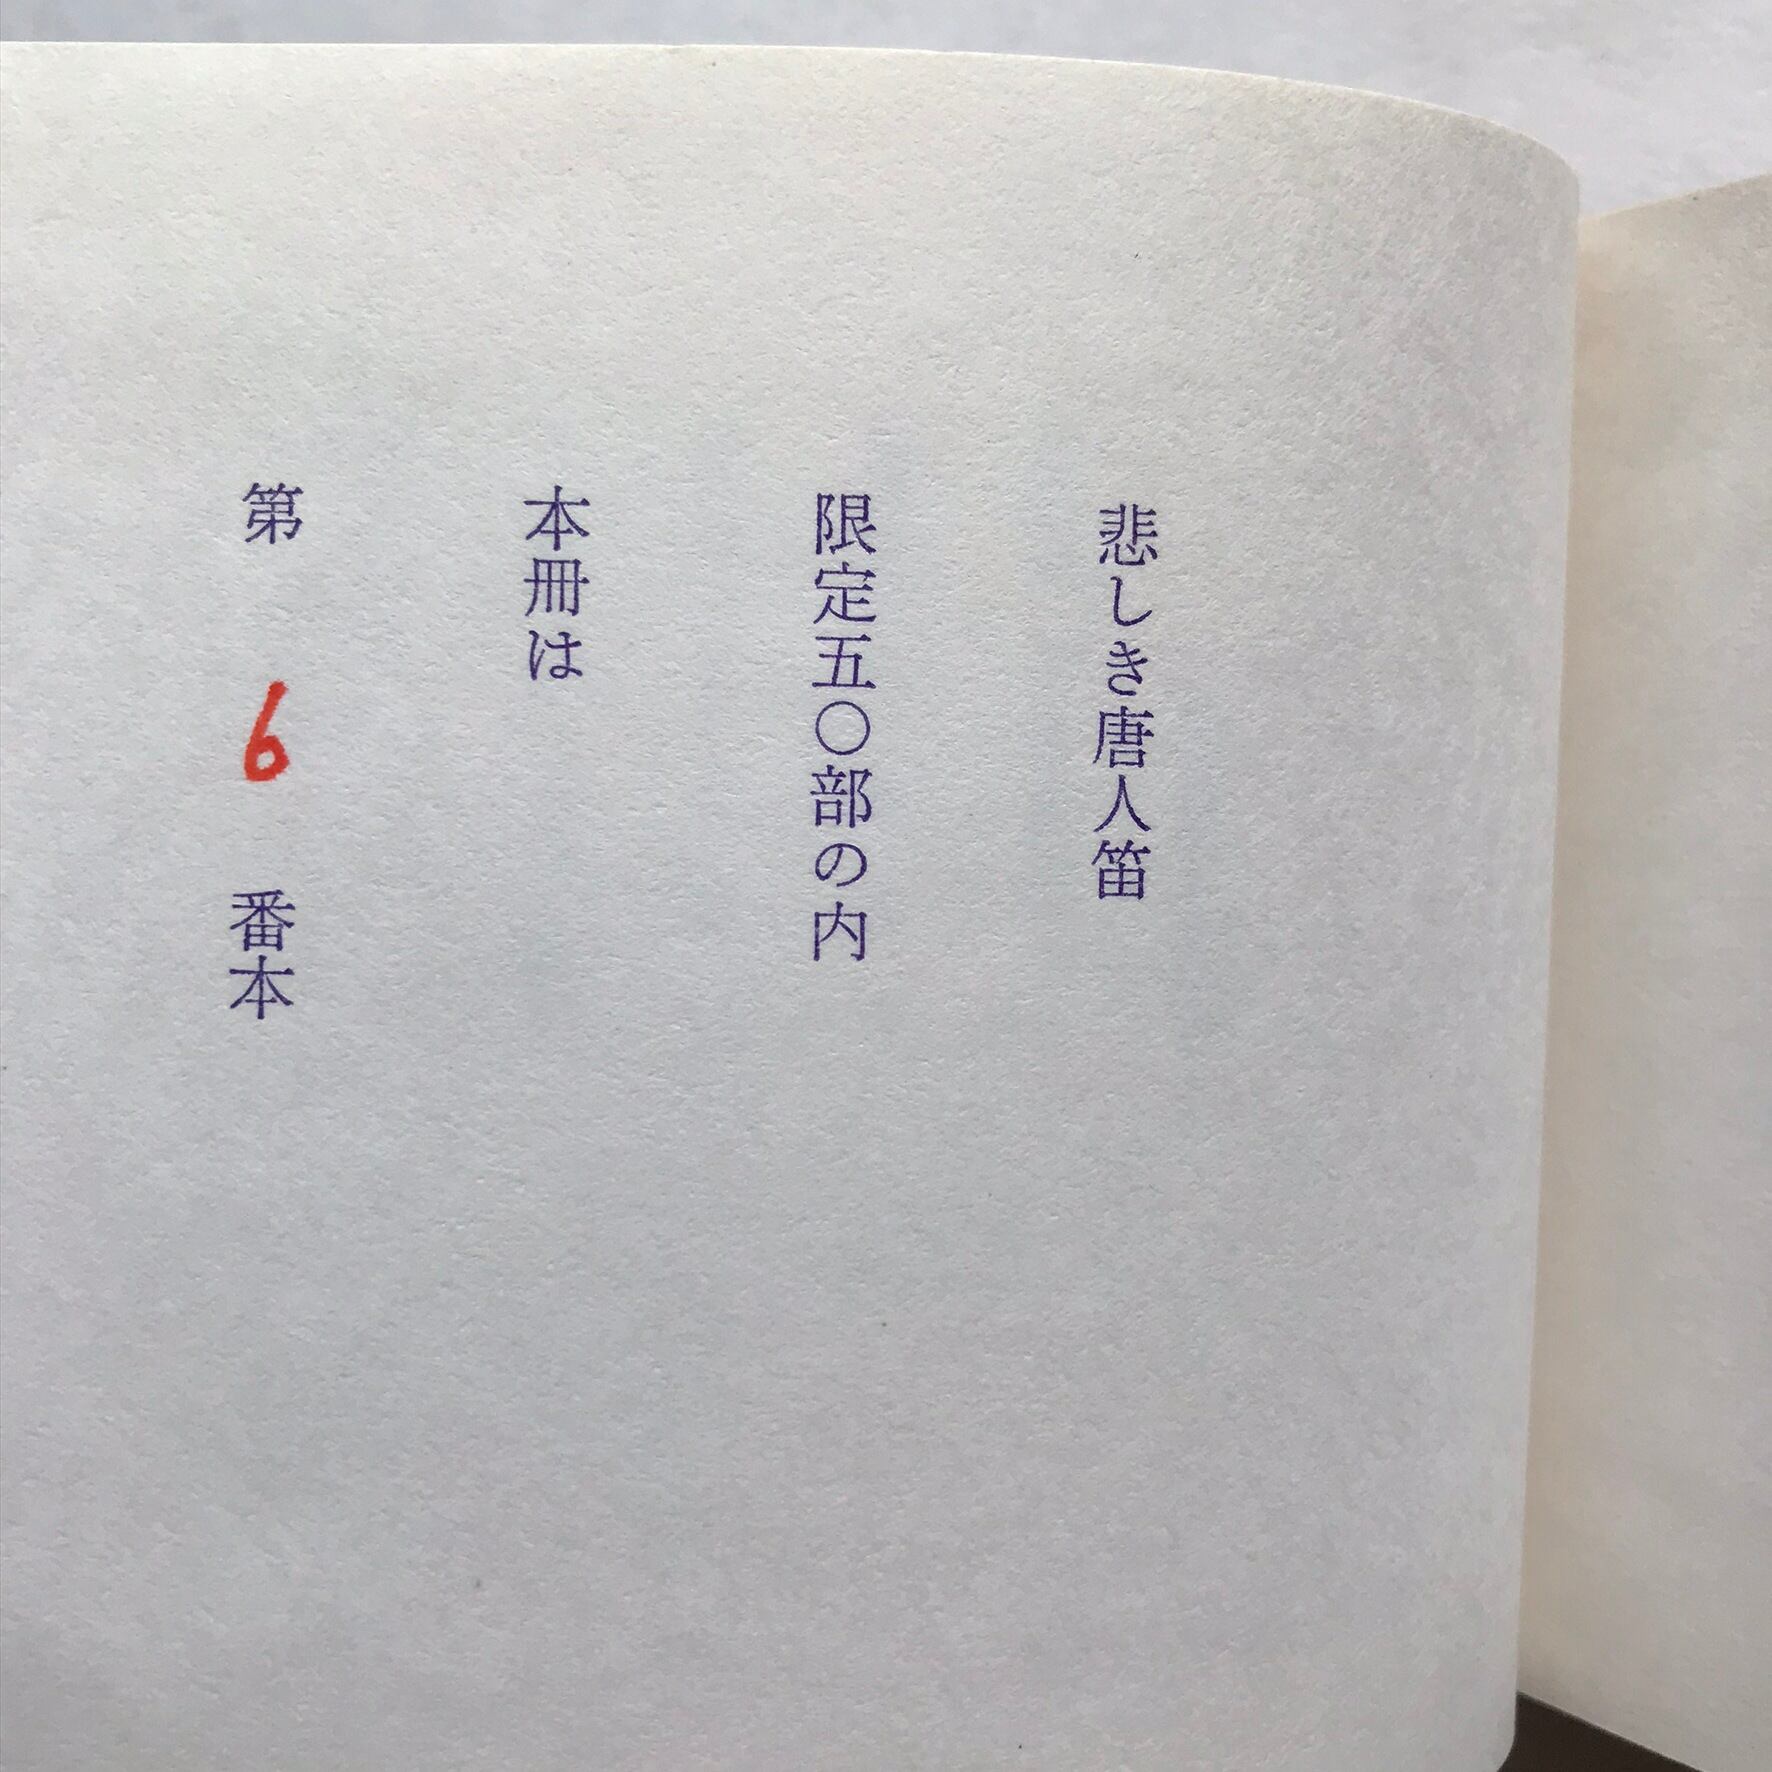 悲しき唐人笛
限定五〇部の内
本冊は
第 6 番本